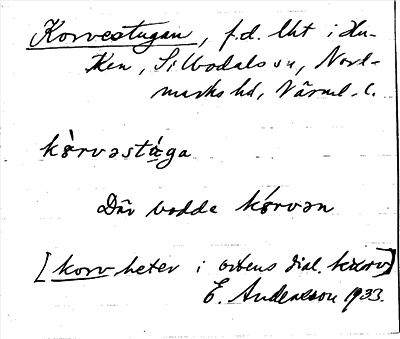 Korvestugan, f.d. lht i Hu-
ken, Silbodals sn, Nord-
marks hd, Värml. l.
kòrvəstùga
Där bodde kórvən
[korv heter i ortens dial. kuurv]
E. Andersson 1933.